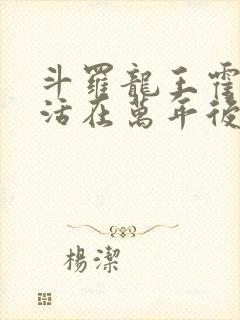 斗羅龍王霍
活在萬年後
楊潔